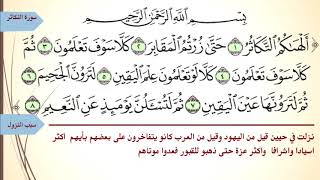 سورة التكاثر
بِسْمِ اللَّهِ الرَّحْمَٰنِ الرَّحِيمِ
أَلْهَاكُمُ التَّكَاثُرُ ۝١ حَتَّىٰ زُرْتُمُ الْمَقَابِرَ ۝٢ كَلَّا سَوْفَ تَعْلَمُونَ ۝٣ ثُمَّ
كَلَّا سَوْفَ تَعْلَمُونَ ۝٤ كَلَّا لَوْ تَعْلَمُونَ عِلْمَ الْيَقِينِ ۝٥ لَتَرَوُنَّ الْجَحِيمَ ۝٦
ثُمَّ لَتَرَوُنَّهَا عَيْنَ الْيَقِينِ ۝٧ ثُمَّ لَتُسْأَلُنَّ يَوْمَئِذٍ عَنِ النَّعِيمِ ۝٨
سبب النزول
نزلت في حيين قيل من اليهود وقيل من العرب كانو يتفاخرون على بعضهم بأيهم اكثر
اسيادا واشرافا واكثر عزة حتى ذهبو للقبور فعدوا موتاهم